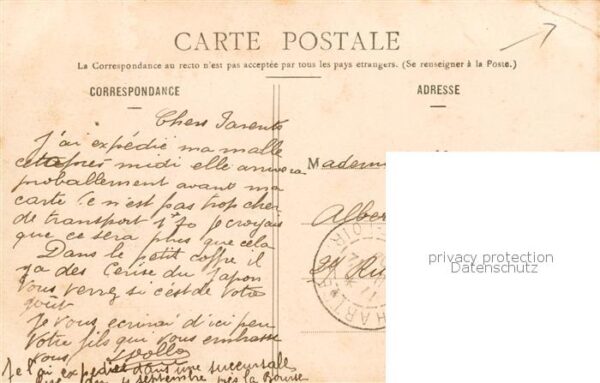 CARTE POSTALE
La Correspondance au recto n'est pas acceptée par tous les pays étrangers. (Se renseigner à la Poste.)
CORRESPONDANCE
ADRESSE
Chers Parents
J'ai expédié ma malle
cet après midi elle arrivera
proballement avant ma
carte Ce n'est pas trop cher
de transport 1f70 je croyais
que ce sera plus que cela
Dans le petit coffre il
ya des Cerise du Japon
Vous verrez si c'est de votre
goût
Je vous ecrirai d'ici peu
Votre fils qui vous embrasse
Vous
Je l'ai expédié dans une succursale
4 septembre près la Bourse
Madem
Alber
24 Ru
privacy protection
Datenschutz